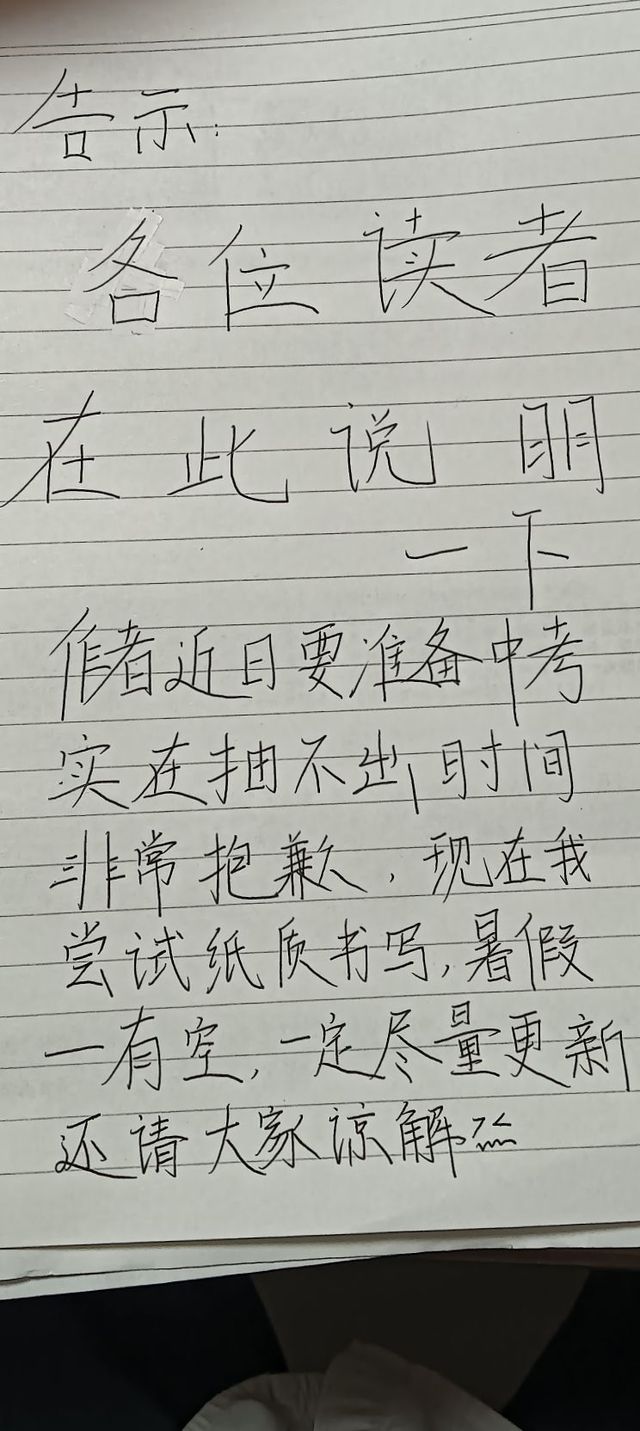 告示:
各位读者
在此说明
一下
作者近日要准备中考
实在抽不出时间
非常抱歉,现在我
尝试纸质书写,暑假
一有空,一定尽量更新
还请大家谅解